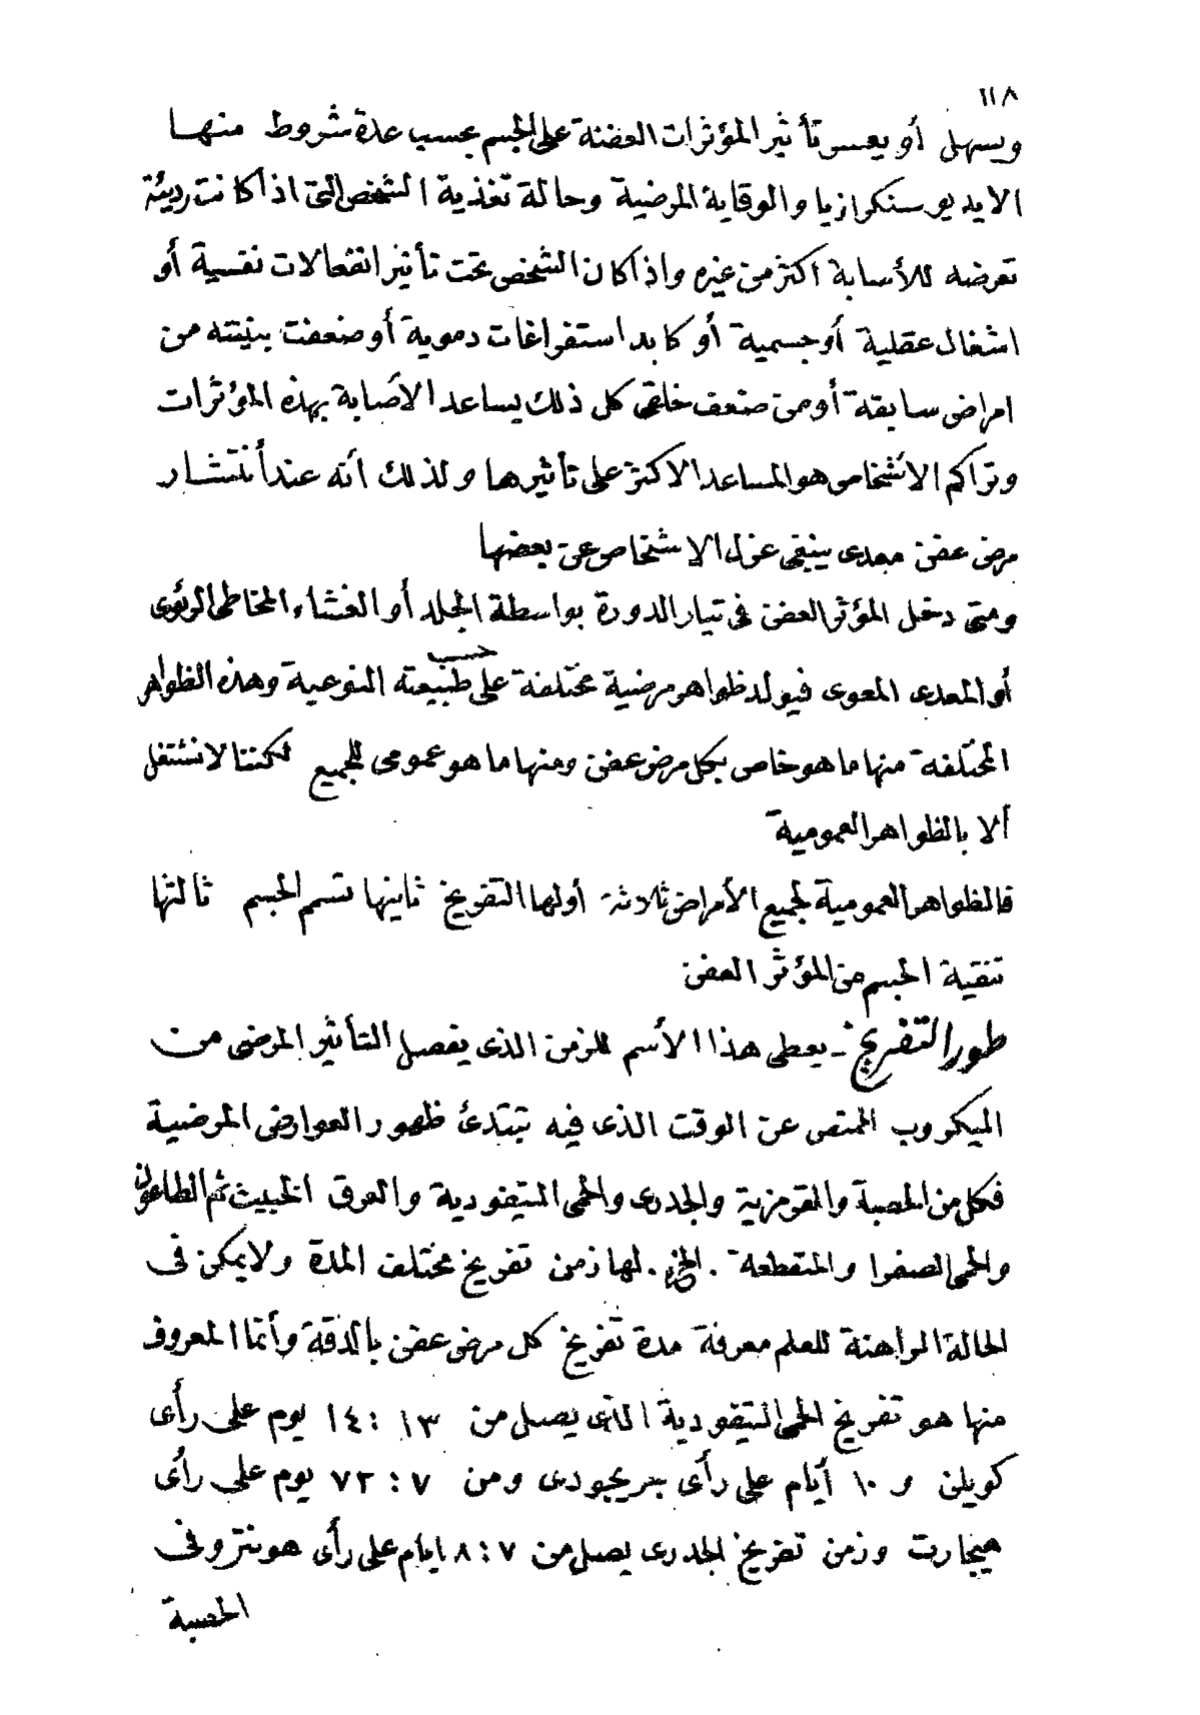 ١١٨
ويسهل أو يعسر تأثير المؤثرات العفنة على الجسم بحسب عدة شروط منها
الايديوسنكرازيا والوقاية المرضية وحالة تغذية الشخص التى اذا كانت رديئة
تعرضه للأسابة اكثر من غيره واذا كان الشخص تحت تأثير انفعالات نفسية أو
اشغال عقلية أو جسمية أو كابد استفراغات دموية أو ضعفت بنيته من
امراض سابقة أو من ضعف خلقى كل ذلك يساعد الأصابة بهذه المؤثرات
وتراكم الأشخاص هو المساعد الاكثر على تأثيرها ولذلك أنه عند أنتشار
مرض عفن معدى ينبغى عزل الاشخاص عن بعضها
ومتى دخل المؤثر العفن فى تيار الدورة بواسطة الجلد أو الغشاء المخاطى الرئوى
أو المعدى المعوى فيولد ظواهر مرضية مختلفة على حسب طبيعته النوعية وهذه الظواهر
المختلفة منها ما هو خاص بكل مرض عفن ومنها ما هو عمومى للجميع لكننا لا نشتغل
ألا بالظواهر العمومية
فالظواهر العمومية لجميع الأمراض ثلاثة أولها التفريخ ثانيها تسمم الجسم ثالثها
تنقية الجسم من المؤثر العفن
طور التفريخ - يعطى هذا الأسم للزمن الذى يفصل التأثير المرضى من
الميكروب الممتص عن الوقت الذى فيه تبتدئ ظهور العوارض المرضية
فكل من الحصبة والقومزية والجدرى والحمى التيفودية والعرق الخبيث ثم الطاعون
والحمى الصفرا والمتقطعة . الخ . لها زمن تفريخ مختلف المدة ولا يمكن فى
الحالة الراهنة للعلم معرفة مدة تفريخ كل مرض عفن بالدقة وأنما المعروف
منها هو تفريخ الحمى التيفودية الذى يصل من ١٣ : ١٤ يوم على رأى
كويلن و ١٠ أيام على رأى بريجودى ومن ٧ : ٧٢ يوم على رأى
هيجارت وزمن تفريخ الجدرى يصل من ٧ : ٨ ايام على رأى هونتر وفى
الحصبة